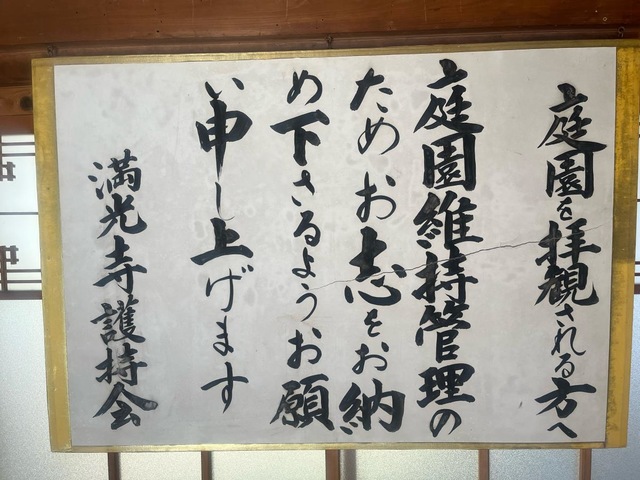 庭園を拝観される方へ
庭園維持管理の
ためお志をお納
め下さるようお願
い申し上げます
満光寺護持会